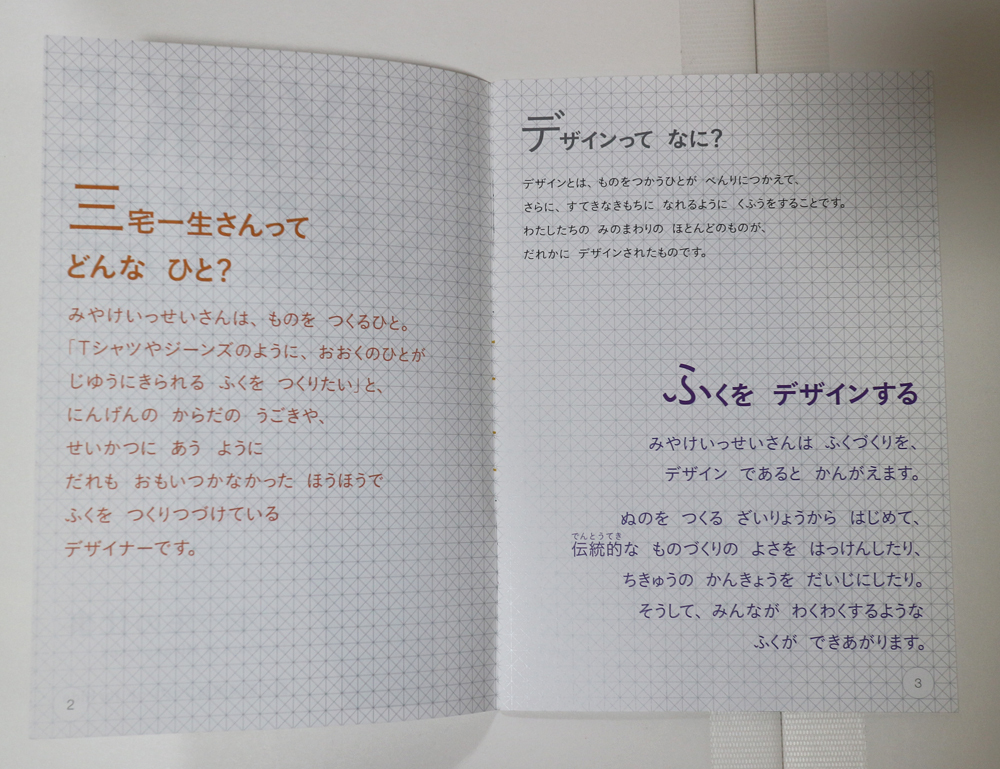 三宅一生さんって
どんな ひと?
みやけいっせいさんは、ものを つくるひと。
「Tシャツやジーンズのように、おおくのひとが
じゆうにきられる ふくを つくりたい」と、
にんげんの からだの うごきや、
せいかつに あう ように
だれも おもいつかなかった ほうほうで
ふくを つくりつづけている
デザイナーです。
2
デザインって なに?
デザインとは、ものをつかうひとが べんりにつかえて、
さらに、すてきなきもちに なれるように くふうをすることです。
わたしたちの みのまわりの ほとんどのものが、
だれかに デザインされたものです。
ふくを デザインする
みやけいっせいさんは ふくづくりを、
デザイン であると かんがえます。
ぬのを つくる ざいりょうから はじめて、
でんとうてき
伝統的な ものづくりの よさを はっけんしたり、
ちきゅうの かんきょうを だいじにしたり。
そうして、みんなが わくわくするような
ふくが できあがります。
3